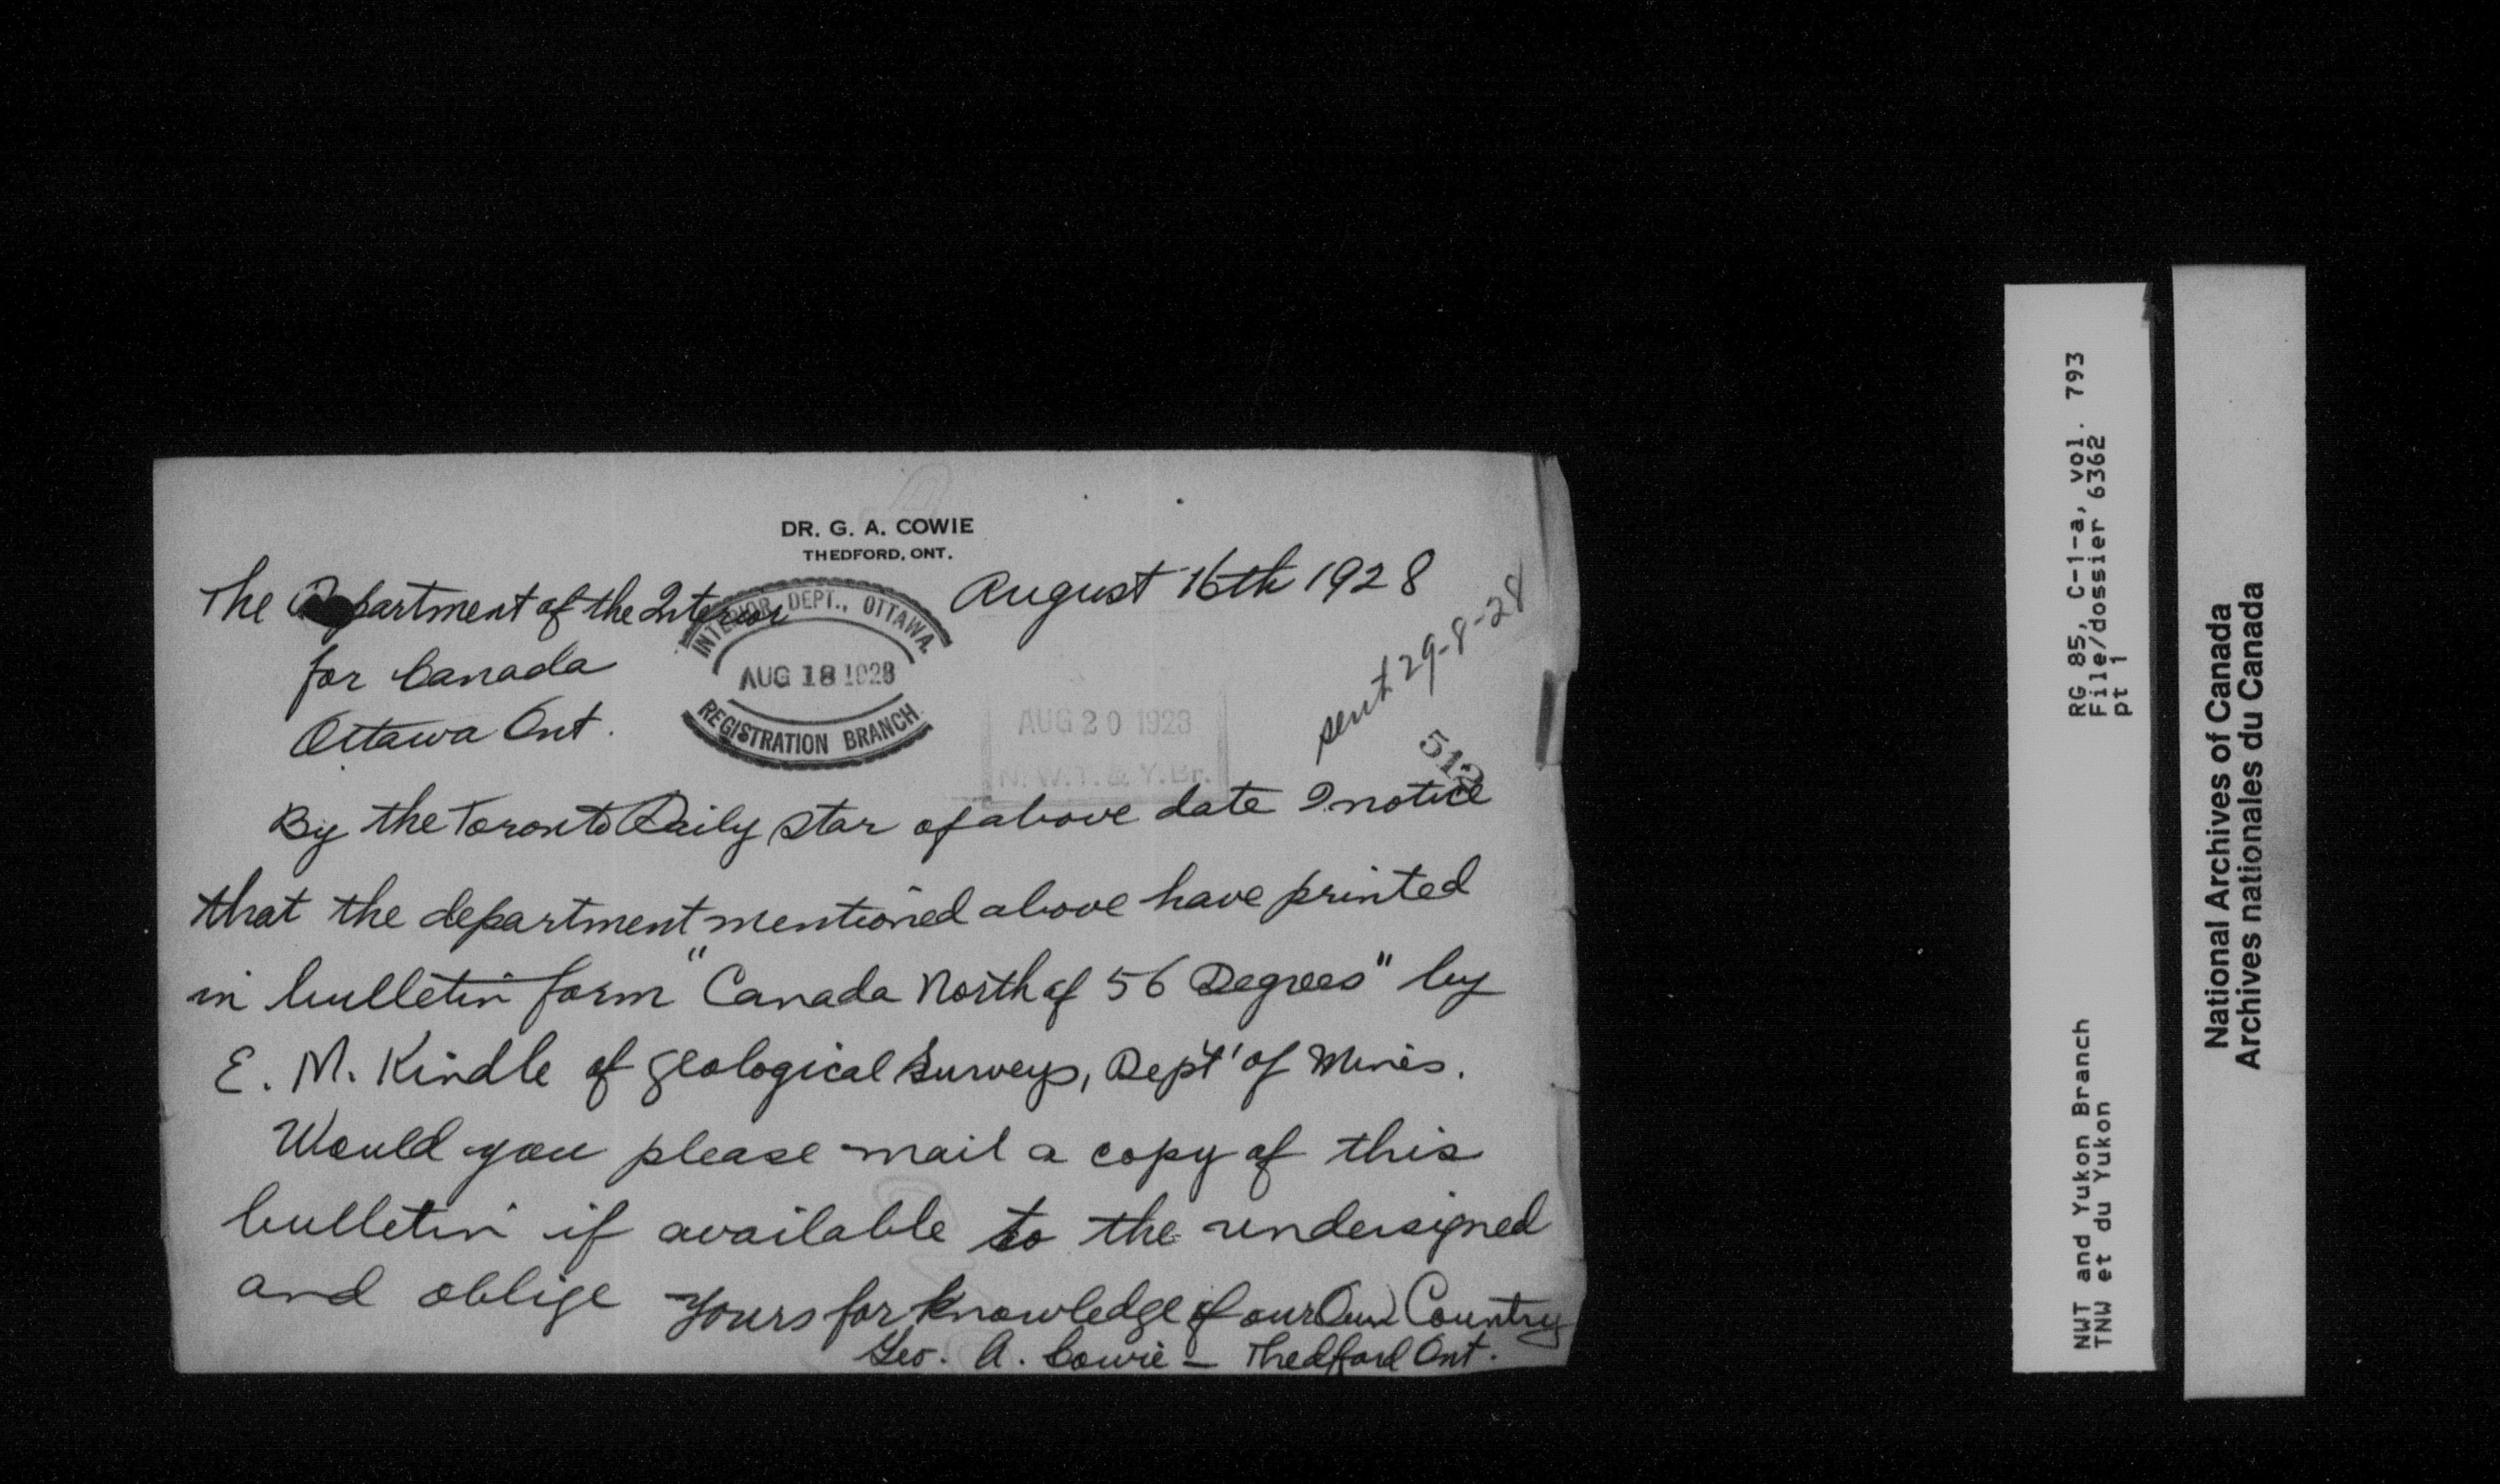 DR. G. A. COWIE
THEDFORD, ONT.
August 16th 1928
The Department of the Interior
for Canada
Ottawa Ont.
INTERIOR DEPT., OTTAWA.
AUG 18 1928
REGISTRATION BRANCH
AUG 20 1928
N. W. T. & Y. Br.
sent 29-8-28
512
By the Toronto Daily Star of above date I notice
that the department mentioned above have printed
in bulletin form "Canada North of 56 Degrees" by
E. M. Kindle of Geological Surveys, Dep't' of Mines.
Would you please mail a copy of this
bulletin if available to the undersigned
and oblige Yours for Knowledge of our Own Country
Geo. A. Cowie - Thedford Ont.
RG 85, C-1-a, vol. 793
File/dossier 6362
pt 1
NWT and Yukon Branch
TNW et du Yukon
National Archives of Canada
Archives nationales du Canada